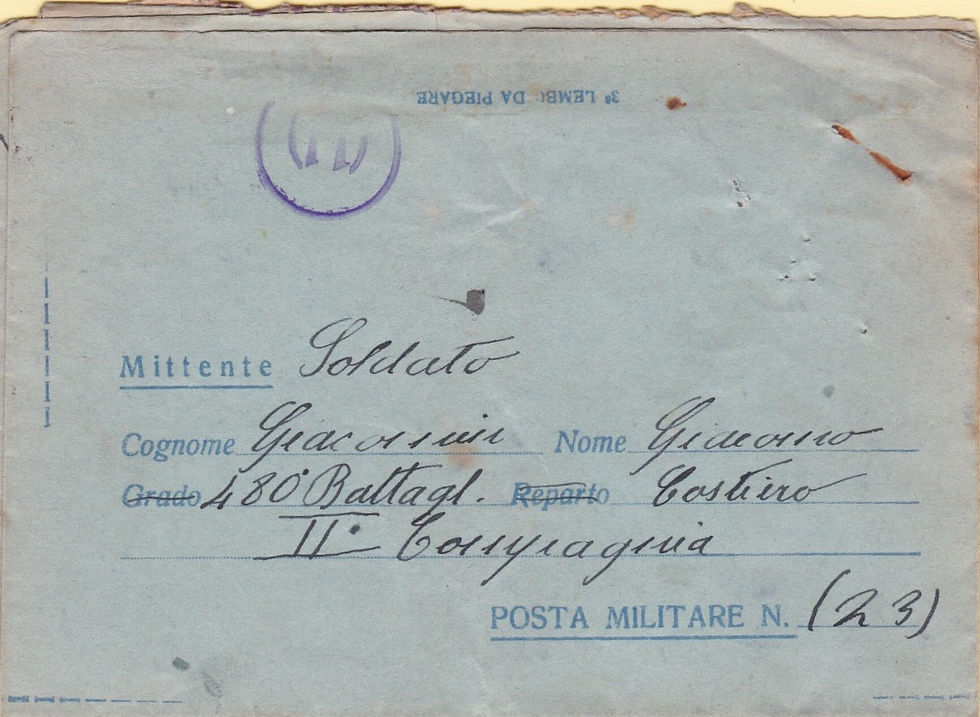 3º LEMBO DA PIEGARE
Mittente Soldato
Cognome Giacomini Nome Giacomo
Grado 480º Battagl. Reparto Costiero
IIª Compagnia
POSTA MILITARE N. (23)